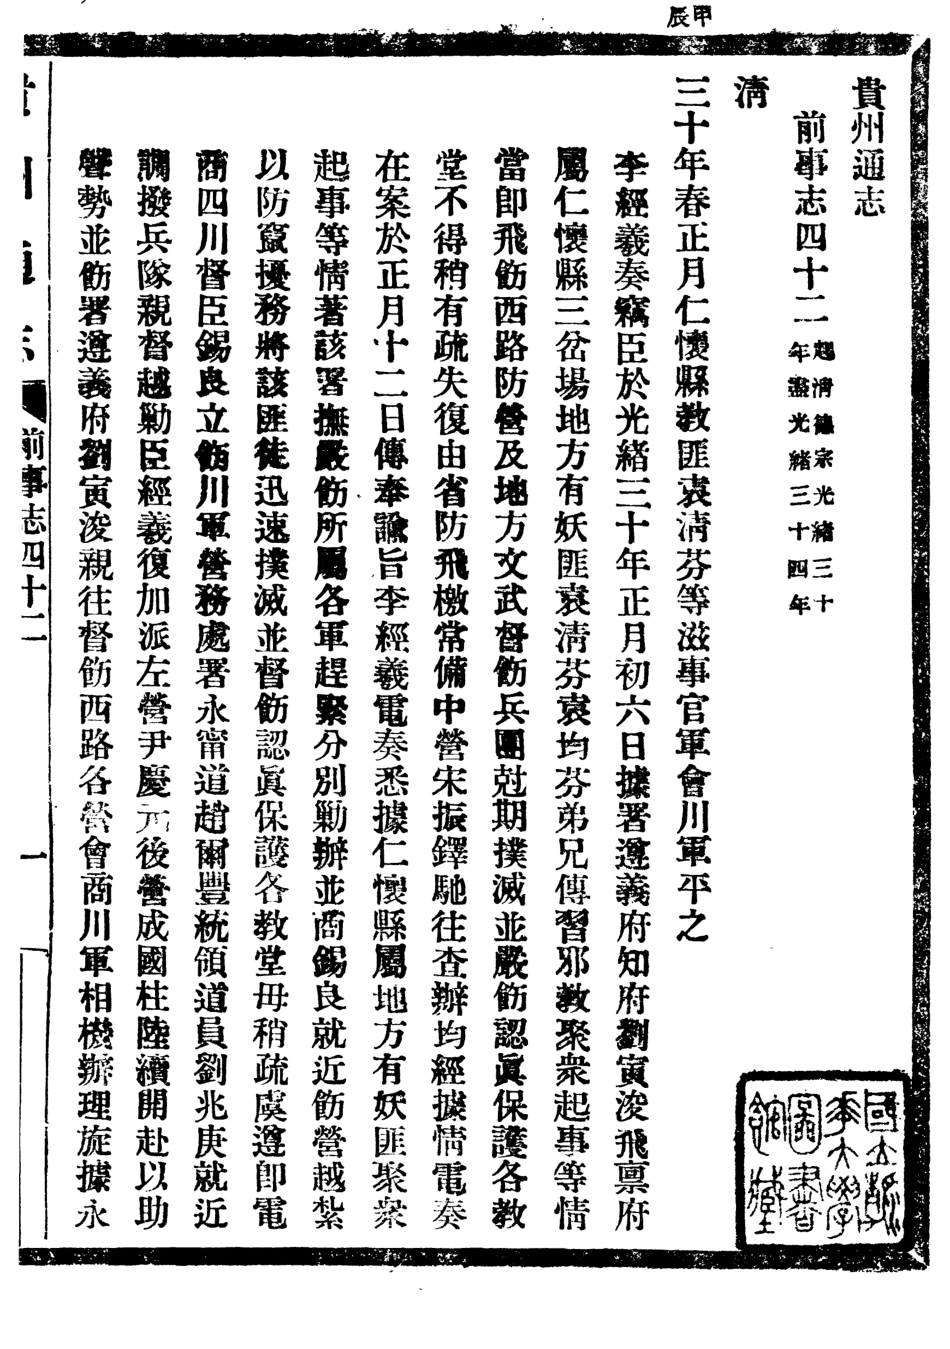 甲辰
貴州通志
前事志四十二 起清德宗光緒三十年盡光緒三十四年
清
三十年春正月仁懷縣教匪袁清芬等滋事官軍會川軍平之
李經羲奏竊臣於光緒三十年正月初六日據署遵義府知府劉寅浚飛禀府
屬仁懷縣三岔場地方有妖匪袁清芬袁均芬弟兄傳習邪教聚衆起事等情
當即飛飭西路防營及地方文武督飭兵團尅期撲滅並嚴飭認眞保護各教
堂不得稍有疏失復由省防飛檄常備中營宋振鐸馳往查辦均經據情電奏
在案於正月十二日傳奉諭旨李經羲電奏悉據仁懷縣屬地方有妖匪聚衆
起事等情著該署撫嚴飭所屬各軍趕緊分別勦辦並商錫良就近飭營越紮
以防竄擾務將該匪徒迅速撲滅並督飭認眞保護各教堂毋稍疏虞遵卽電
商四川督臣錫良立飭川軍營務處署永甯道趙爾豐統領道員劉兆庚就近
調撥兵隊親督越勦臣經羲復加派左營尹慶元後營成國柱陸續開赴以助
聲勢並飭署遵義府劉寅浚親往督飭西路各營會商川軍相機辦理旋據永
貴州通志
前事志四十二
一
國立清華大學圖書館藏